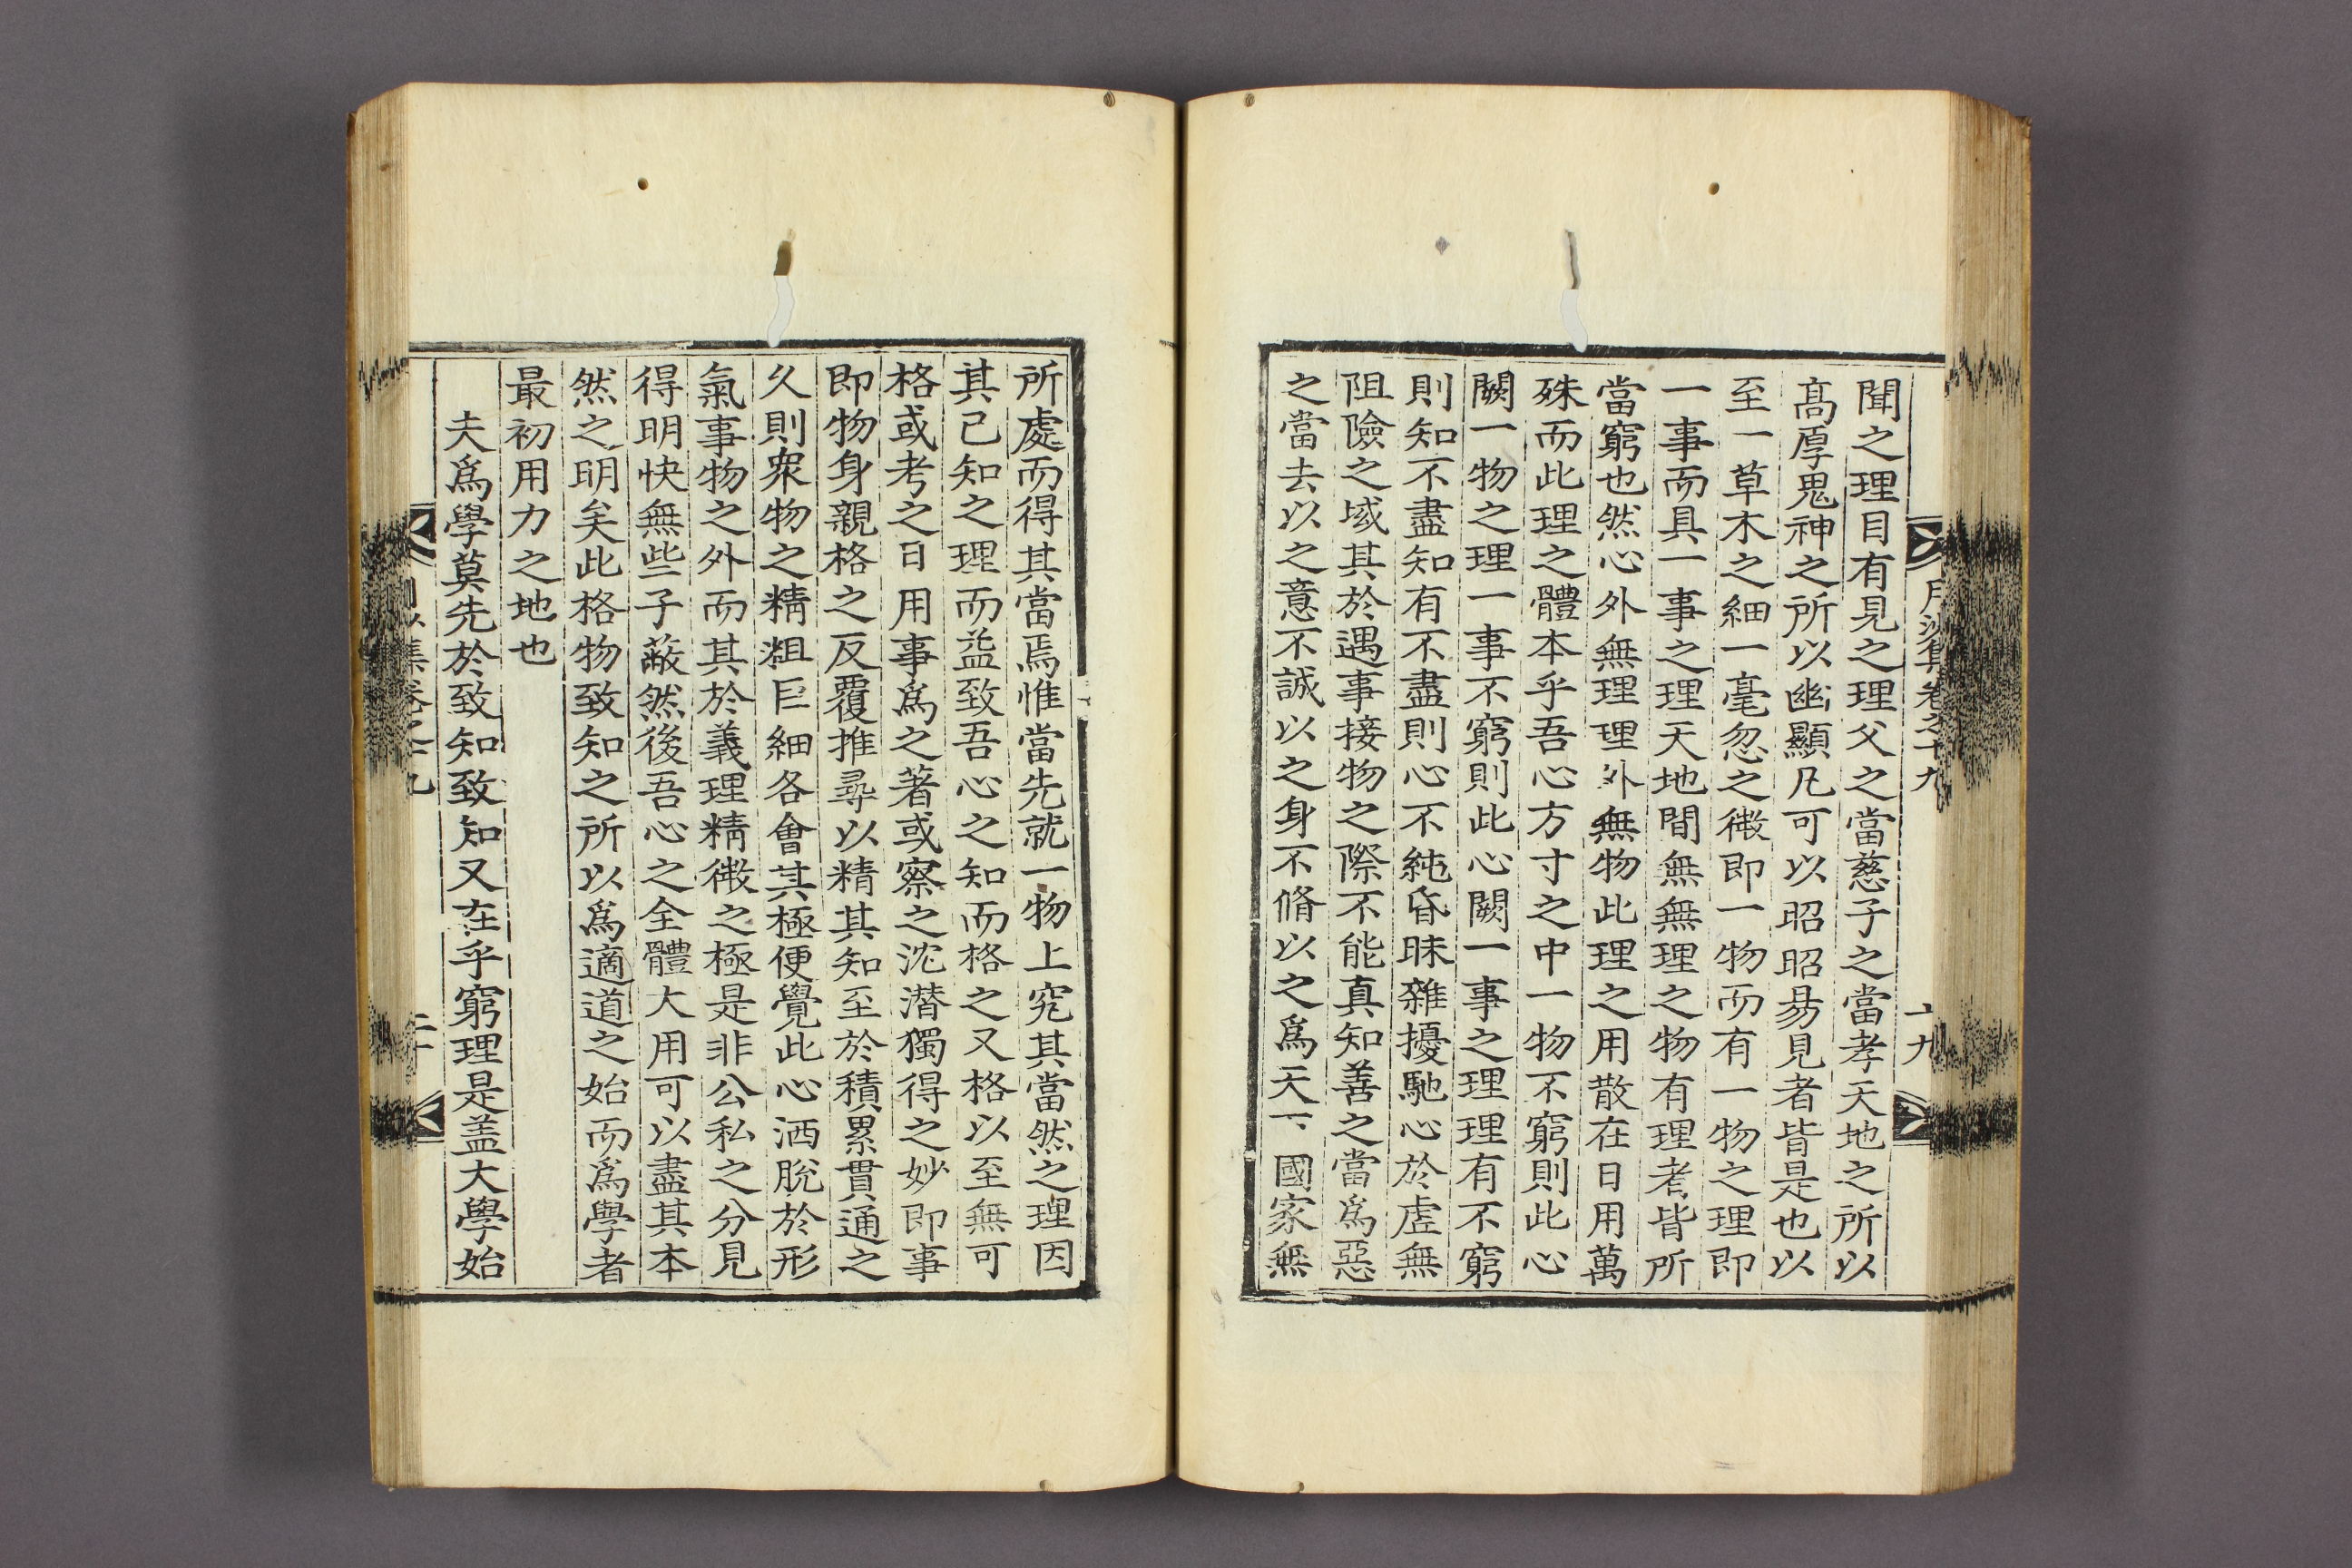 聞之理目有見之理父之當慈子之當孝天地之所以
高厚鬼神之所以幽顯凡可以昭昭易見者皆是也以
至一草木之細一毫忽之微即一物而有一物之理即
一事而具一事之理天地間無無理之物有理者皆所
當窮也然心外無理理外無物此理之用散在日用萬
殊而此理之體本乎吾心方寸之中一物不窮則此心
闕一物之理一事不窮則此心闕一事之理理有不窮
則知不盡知有不盡則心不純昏昧雜擾馳心於虛無
阻險之域其於遇事接物之際不能真知善之當爲惡
之當去以之意不誠以之身不脩以之爲天下國家無
月沙集卷之十九
十九
所處而得其當焉惟當先就一物上究其當然之理因
其已知之理而益致吾心之知而格之又格以至無可
格或考之日用事爲之著或察之沈潛獨得之妙即事
即物身親格之反覆推尋以精其知至於積累貫通之
久則衆物之精粗巨細各會其極便覺此心洒脫於形
氣事物之外而其於義理精微之極是非公私之分見
得明快無些子蔽然後吾心之全體大用可以盡其本
然之明矣此格物致知之所以爲適道之始而爲學者
最初用力之地也
夫爲學莫先於致知致知又在乎窮理是盖大學始
集卷之十九
二十